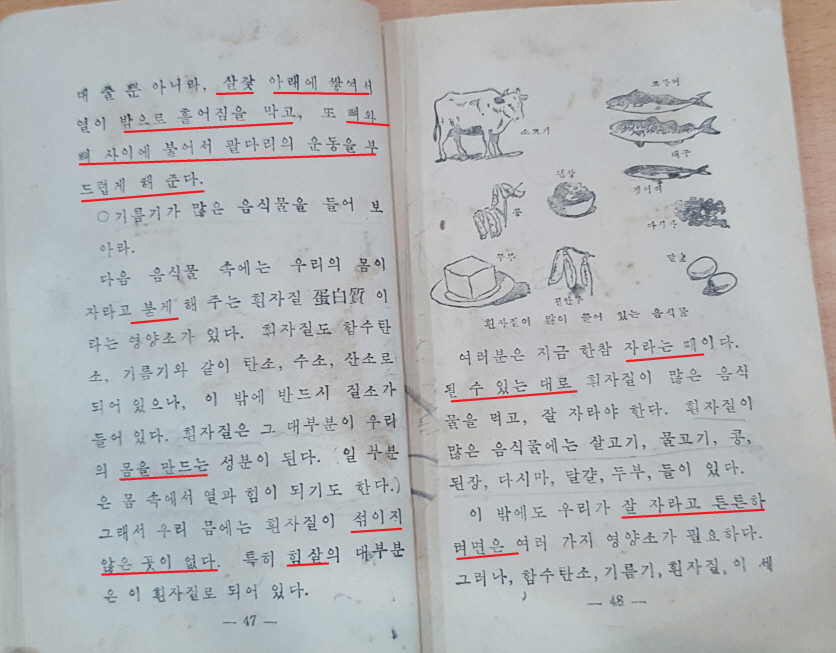 대 줄 뿐 아니라, 살갗 아래에 쌓여서
열이 밖으로 흩어짐을 막고, 또 뼈와
뼈 사이에 불어서 팔다리의 운동을 부
드럽게 해 준다.
○기름기가 많은 음식물을 들어 보
아라.
다음 음식물 속에는 우리의 몸이
자라고 붇게 해 주는 흰자질 蛋白質 이
라는 영양소가 있다. 흰자질도 함수탄
소, 기름기와 같이 탄소, 수소, 산소로
되어 있으나, 이 밖에 반드시 질소가
들어 있다. 흰자질은 그 대부분이 우리
의 몸을 만드는 성분이 된다. (일 부분
은 몸 속에서 열과 힘이 되기도 한다.)
그래서 우리 몸에는 흰자질이 섞이지
않은 곳이 없다. 특히 힘살의 대부분
은 이 흰자질로 되어 있다.
— 47 —
소고기
대구
정어리
된장
콩
다시마
두부
달걀
흰자질이 많이 들어 있는 음식물
여러분은 지금 한참 자라는 때이다.
될 수 있는 대로 흰자질이 많은 음식
물을 먹고, 잘 자라야 한다. 흰자질이
많은 음식물에는 살고기, 물고기, 콩,
된장, 다시마, 달걀, 두부, 들이 있다.
이 밖에도 우리가 잘 자라고 튼튼하
려면은 여러 가지 영양소가 필요하다.
그러나, 함수탄소, 기름기, 흰자질, 이 세
— 48 —